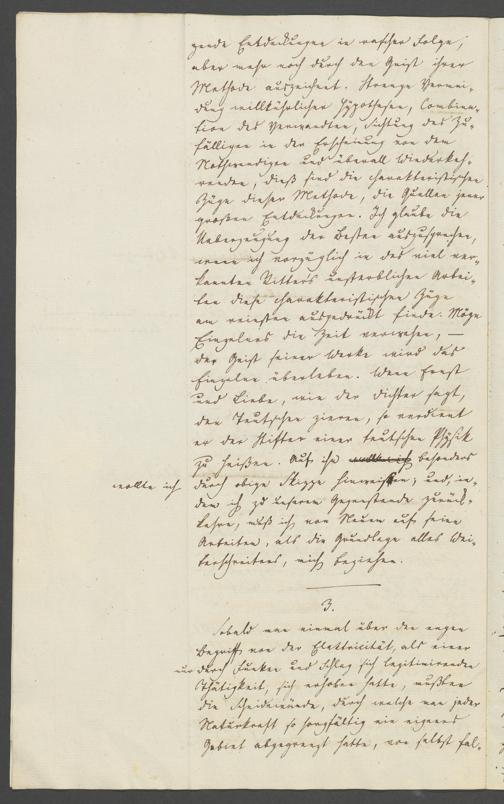 gende Entdeckungen in rascher Folge,
aber mehr noch durch den Geist ihrer
Methode auszeichnet. Strenge Vermei-
dung willkührlicher Hypothesen, Combina-
tion des Verwandten, Sichtung des Zu-
fälligen in der Erscheinung von dem
Nothwendigen und überall Wiederkeh-
renden, dieß sind die charakteristischen
Züge dieser Methode, die Quellen jener
großen Entdeckungen. Ich glaube die
Ueberzeugung der Besten auszusprechen,
wenn ich vorzüglich in des viel ver-
kannten Ritters unsterblichen Arbei-
ten diese charakteristischen Züge
am reinsten ausgedrückt finde. Möge
Einzelnes die Zeit verwehen, —
der Geist seiner Werke wird das
Einzelne überleben. Wenn Ernst
und Liebe, wie der Dichter sagt,
den Teutschen zieren, so verdient
er der Stifter einer teutschen Physik
zu heißen. Auf ihn wollte ich besonders
wollte ich durch obige Skizze hinweisen; und, in-
dem ich zu unserm Gegenstande zurück-
kehre, muß ich von Neuem auf seine
Arbeiten, als die Grundlage alles Wei-
terschreitens, mich beziehen.
3.
Sobald man einmal über den engen
Begriff von der Elektricität, als einer
nur durch Funken und Schlag sich legitimirenden
Thätigkeit, sich erhoben hatte, mußten
die Scheidewände, durch welche man jeder
Naturkraft so sorgfältig ein eigenes
Gebiet abgegrenzt hatte, von selbst fal-